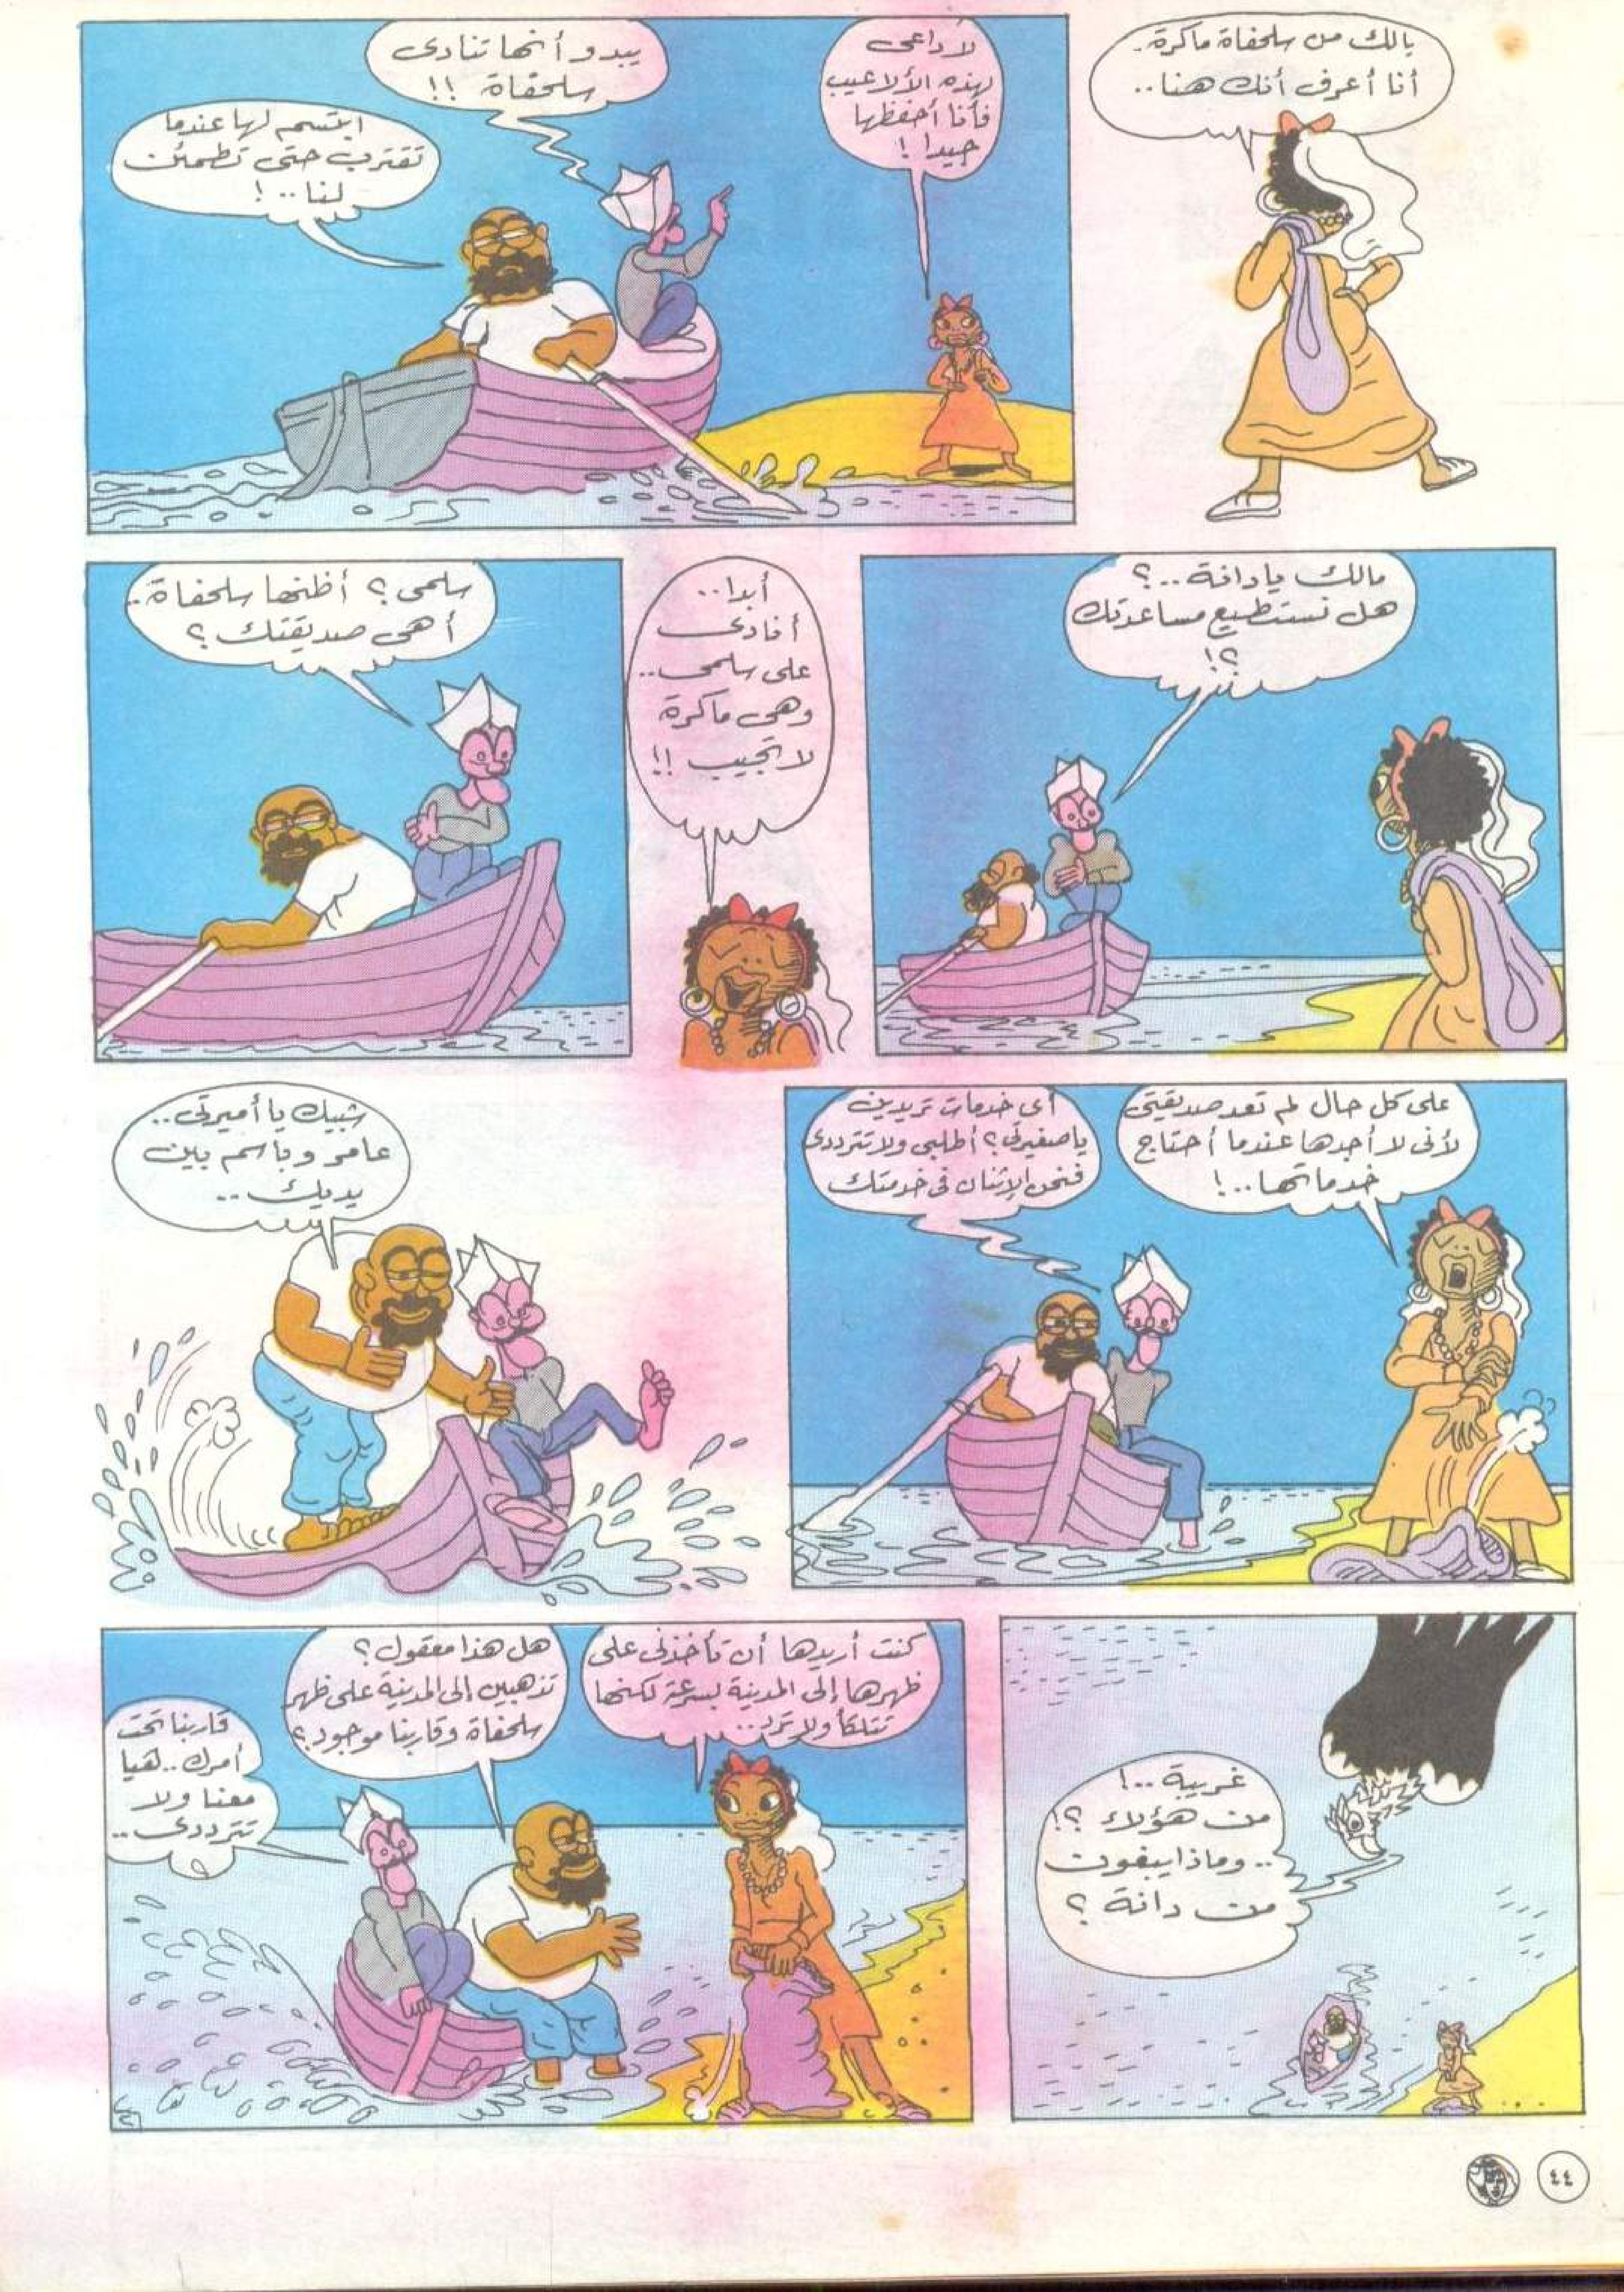 يالك من سلحفاة ماكرة.
أنا أعرف أنك هنا..
لا داعى
لهذه الألاعيب
فأنا أحفظها
جيدا !
يبدو أنها تنادى
سلحفاة !!
ابتسم لها عندما
تقترب حتى تطمئن
لنا..!
مالك يا دانة..؟
هل نستطيع مساعدتك
؟!
أبدا..
أنادى
على سلمى..
وهى ماكرة
لا تجيب !!
سلمى ؟ أظنها سلحفاة..
أهى صديقتك ؟
على كل حال لم تعد صديقتى
لأنى لا أجدها عندما أحتاج
خدماتها..!
أى خدمات تريدين
يا صغيرتى ؟ أطلبى ولا تترددى
فنحن الإثنان فى خدمتك
شبيك يا أميرتى..
عامر وباسم بين
يديك..
غريبة..!
من هؤلاء ؟!
.. وماذا يبغون
من دانة ؟
كنت أريدها أن تأخذنى على
ظهرها إلى المدينة بسرعة لكنها
تتلكأ ولا ترد..
هل هذا معقول ؟
تذهبين إلى المدينة على ظهر
سلحفاة وقاربنا موجود ؟
قاربنا تحت
أمرك.. هيا
معنا ولا
تترددى..
٤٤